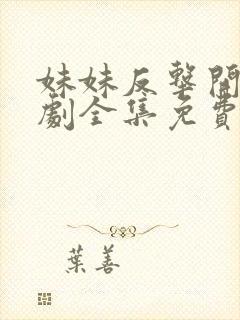 妹妹反擊開
劇全集免費
葉善